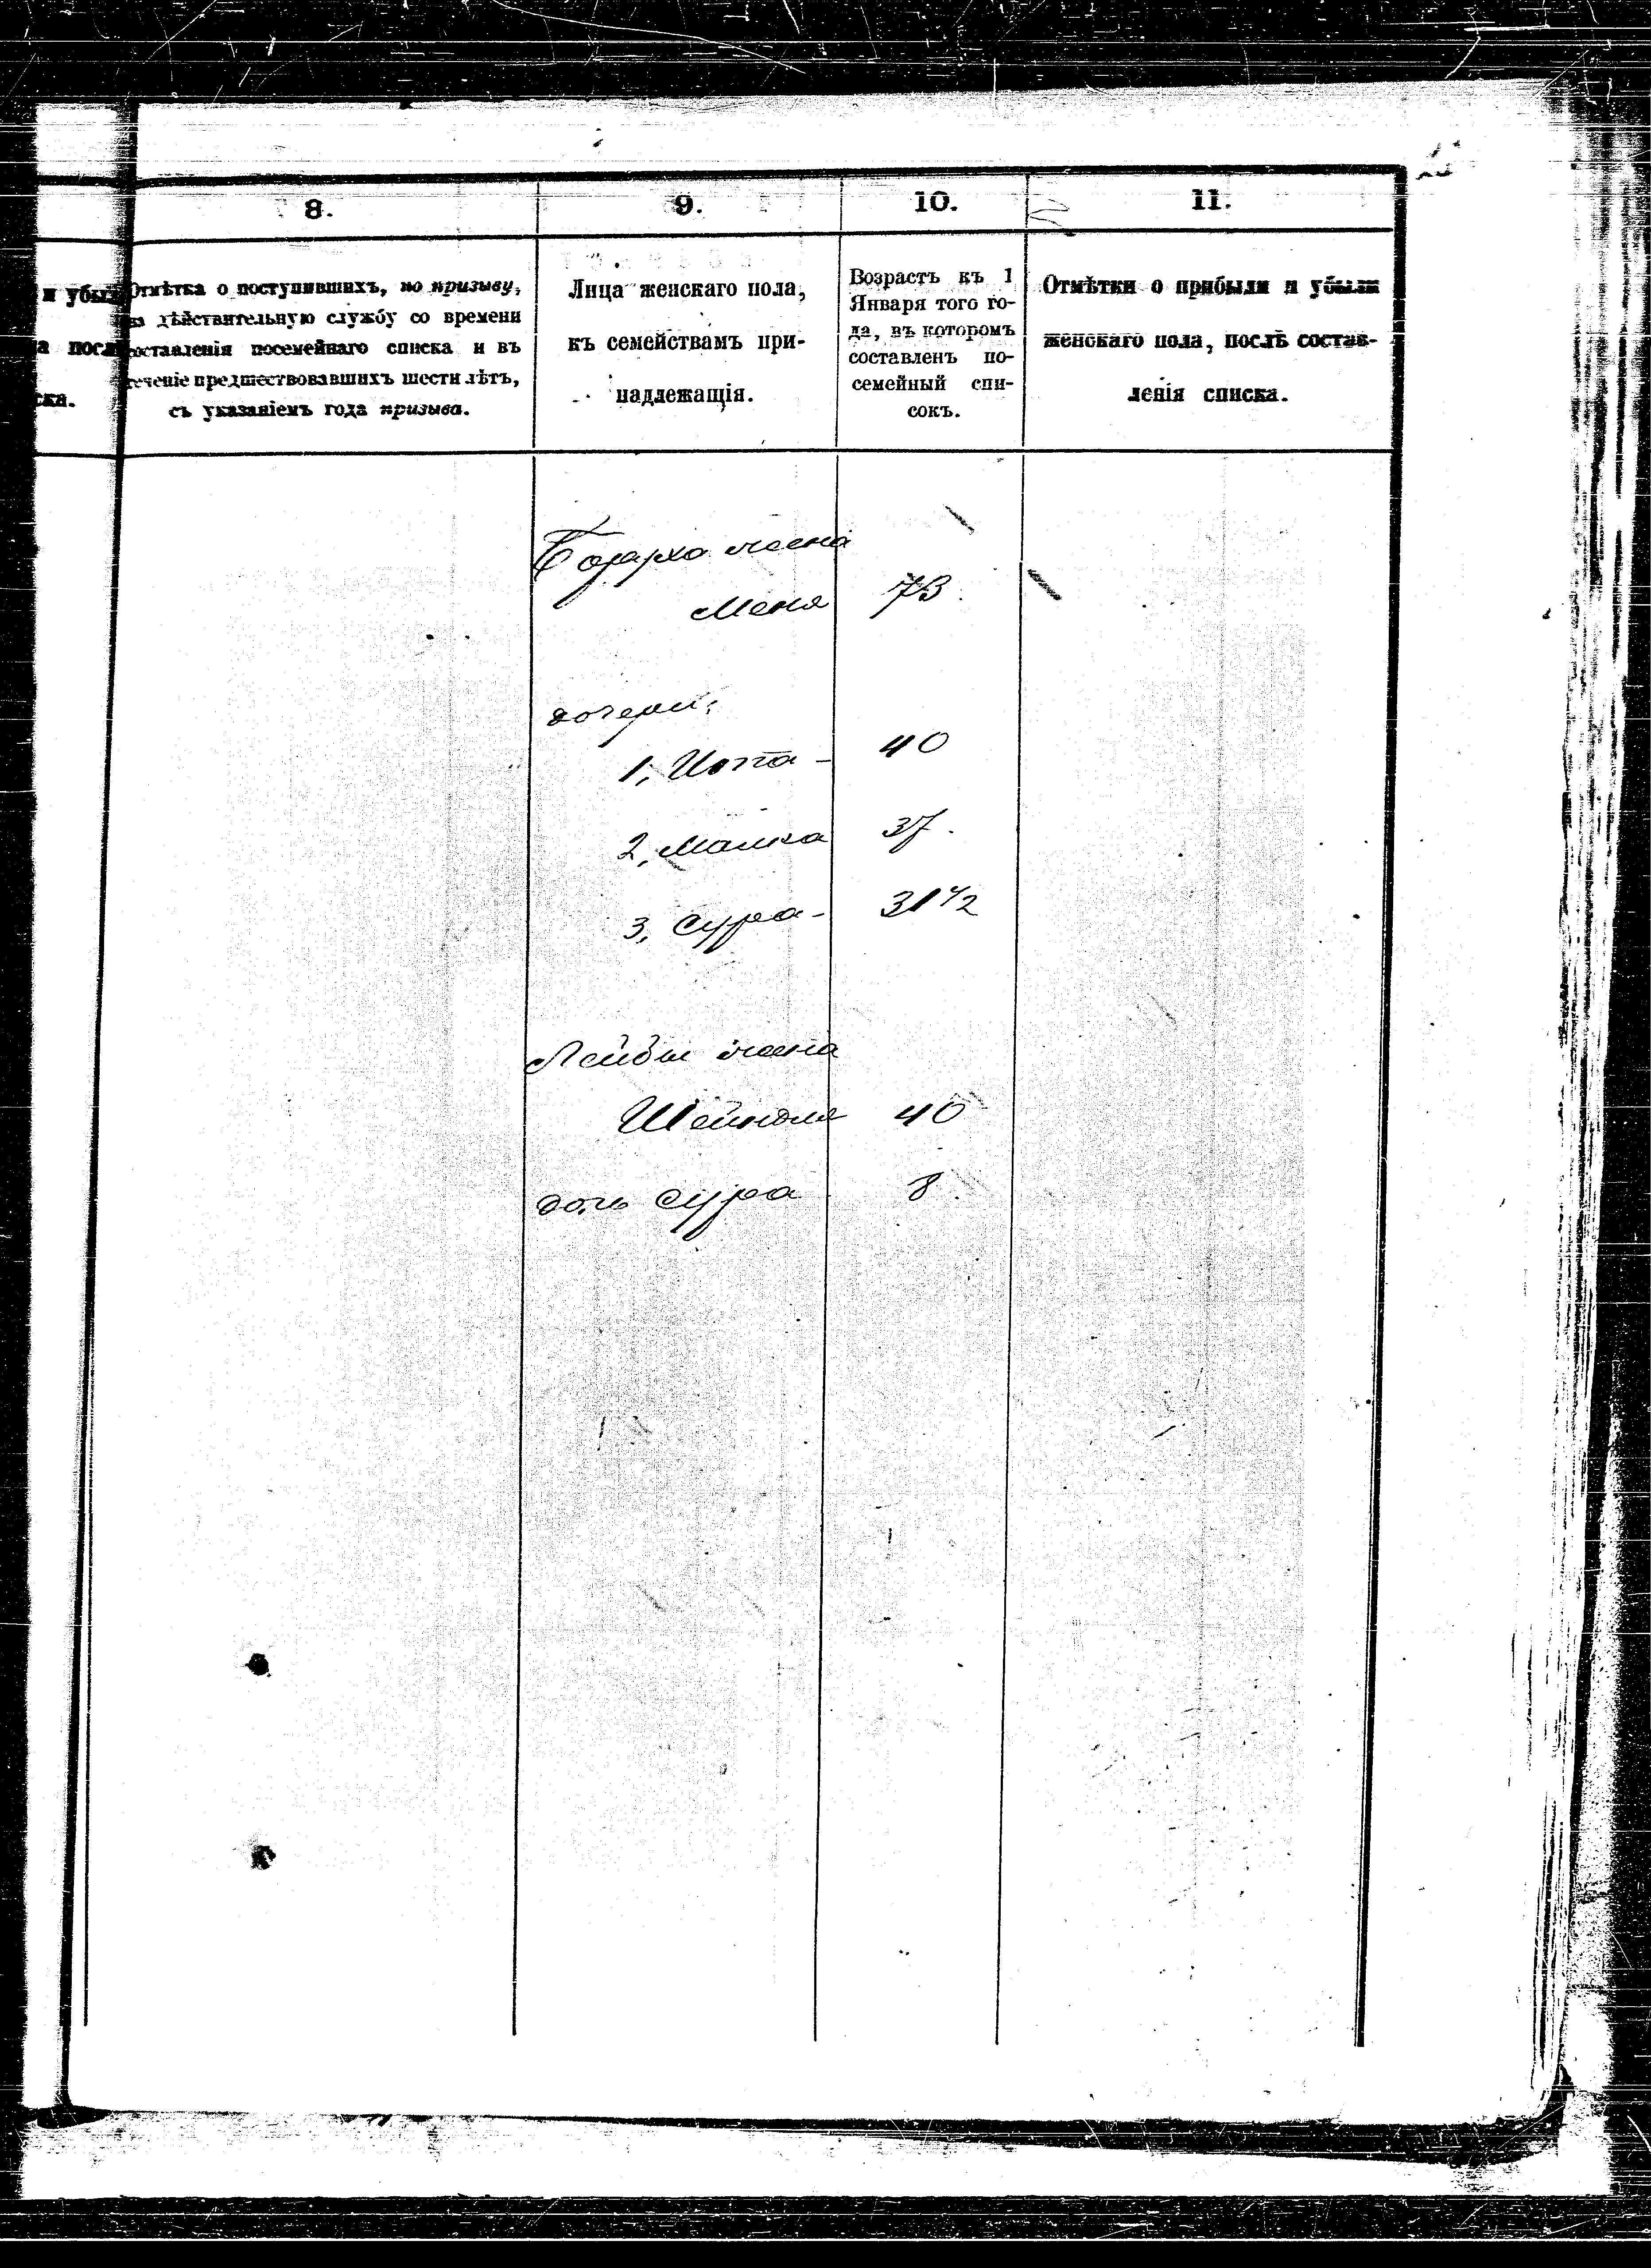 8.
9.
10.
11.
и убы
а посл
ска.
Отмѣтка о поступившихъ, по призыву,
на дѣйствительную службу со времени
составленія посемейнаго списка и въ
теченіе предшествовавшихъ шести лѣтъ,
съ указаніемъ года призыва.
Лица женскаго пола,
къ семействамъ при-
надлежащія.
Возрастъ къ 1
Января того го-
да, въ которомъ
составленъ по-
семейный спи-
сокъ.
Отмѣтки о прибыли и убыли
женскаго пола, послѣ состав-
ленія списка.
жена
Меня 73.
дочери:
1, Ита - 40
2, Малка 37.
3, Сура - 31 1/2
Лейбы жена
Шейндля 40
дочь Сура 8.